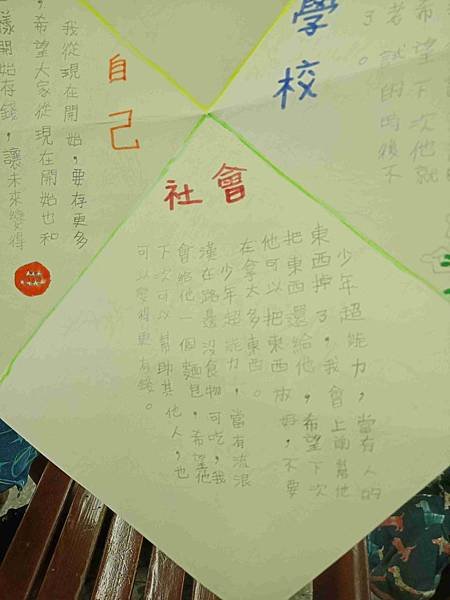 學校
希望下次他就
考試的時後不
了。
自己
我從現在開始,要存更多
,希望大家從現在開始也和
樣開始存錢,讓未來變得
社會
少年超能力,當有人的
東西掉了,我會上前幫他
把東西還給他,希望下次
他可以把東西放好,不要
在拿太多東西。
少年超能力,當有流浪
漢在路邊沒食物可吃,我
會給他一個麵包,希望他
下次可以幫助其他人,也
可以變得更有錢。